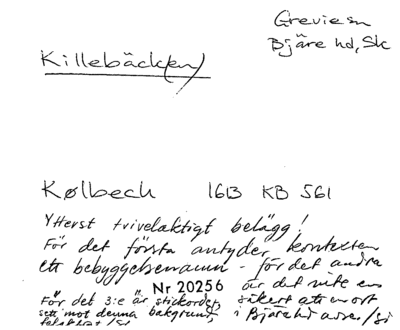 Grevie sn
Bjäre hd, Sk
Killebäck(en)
Kølbech 1613 KB 561
Ytterst tvivelaktigt belägg!
För det första antyder kontexten
ett bebyggelsenamn - för det andra
Nr 20256 är det inte ens
För det 3:e är stickordet, säkert att en ort
sett mot denna bakgrund, i Bjäre hd avses /Si
felaktigt /Si